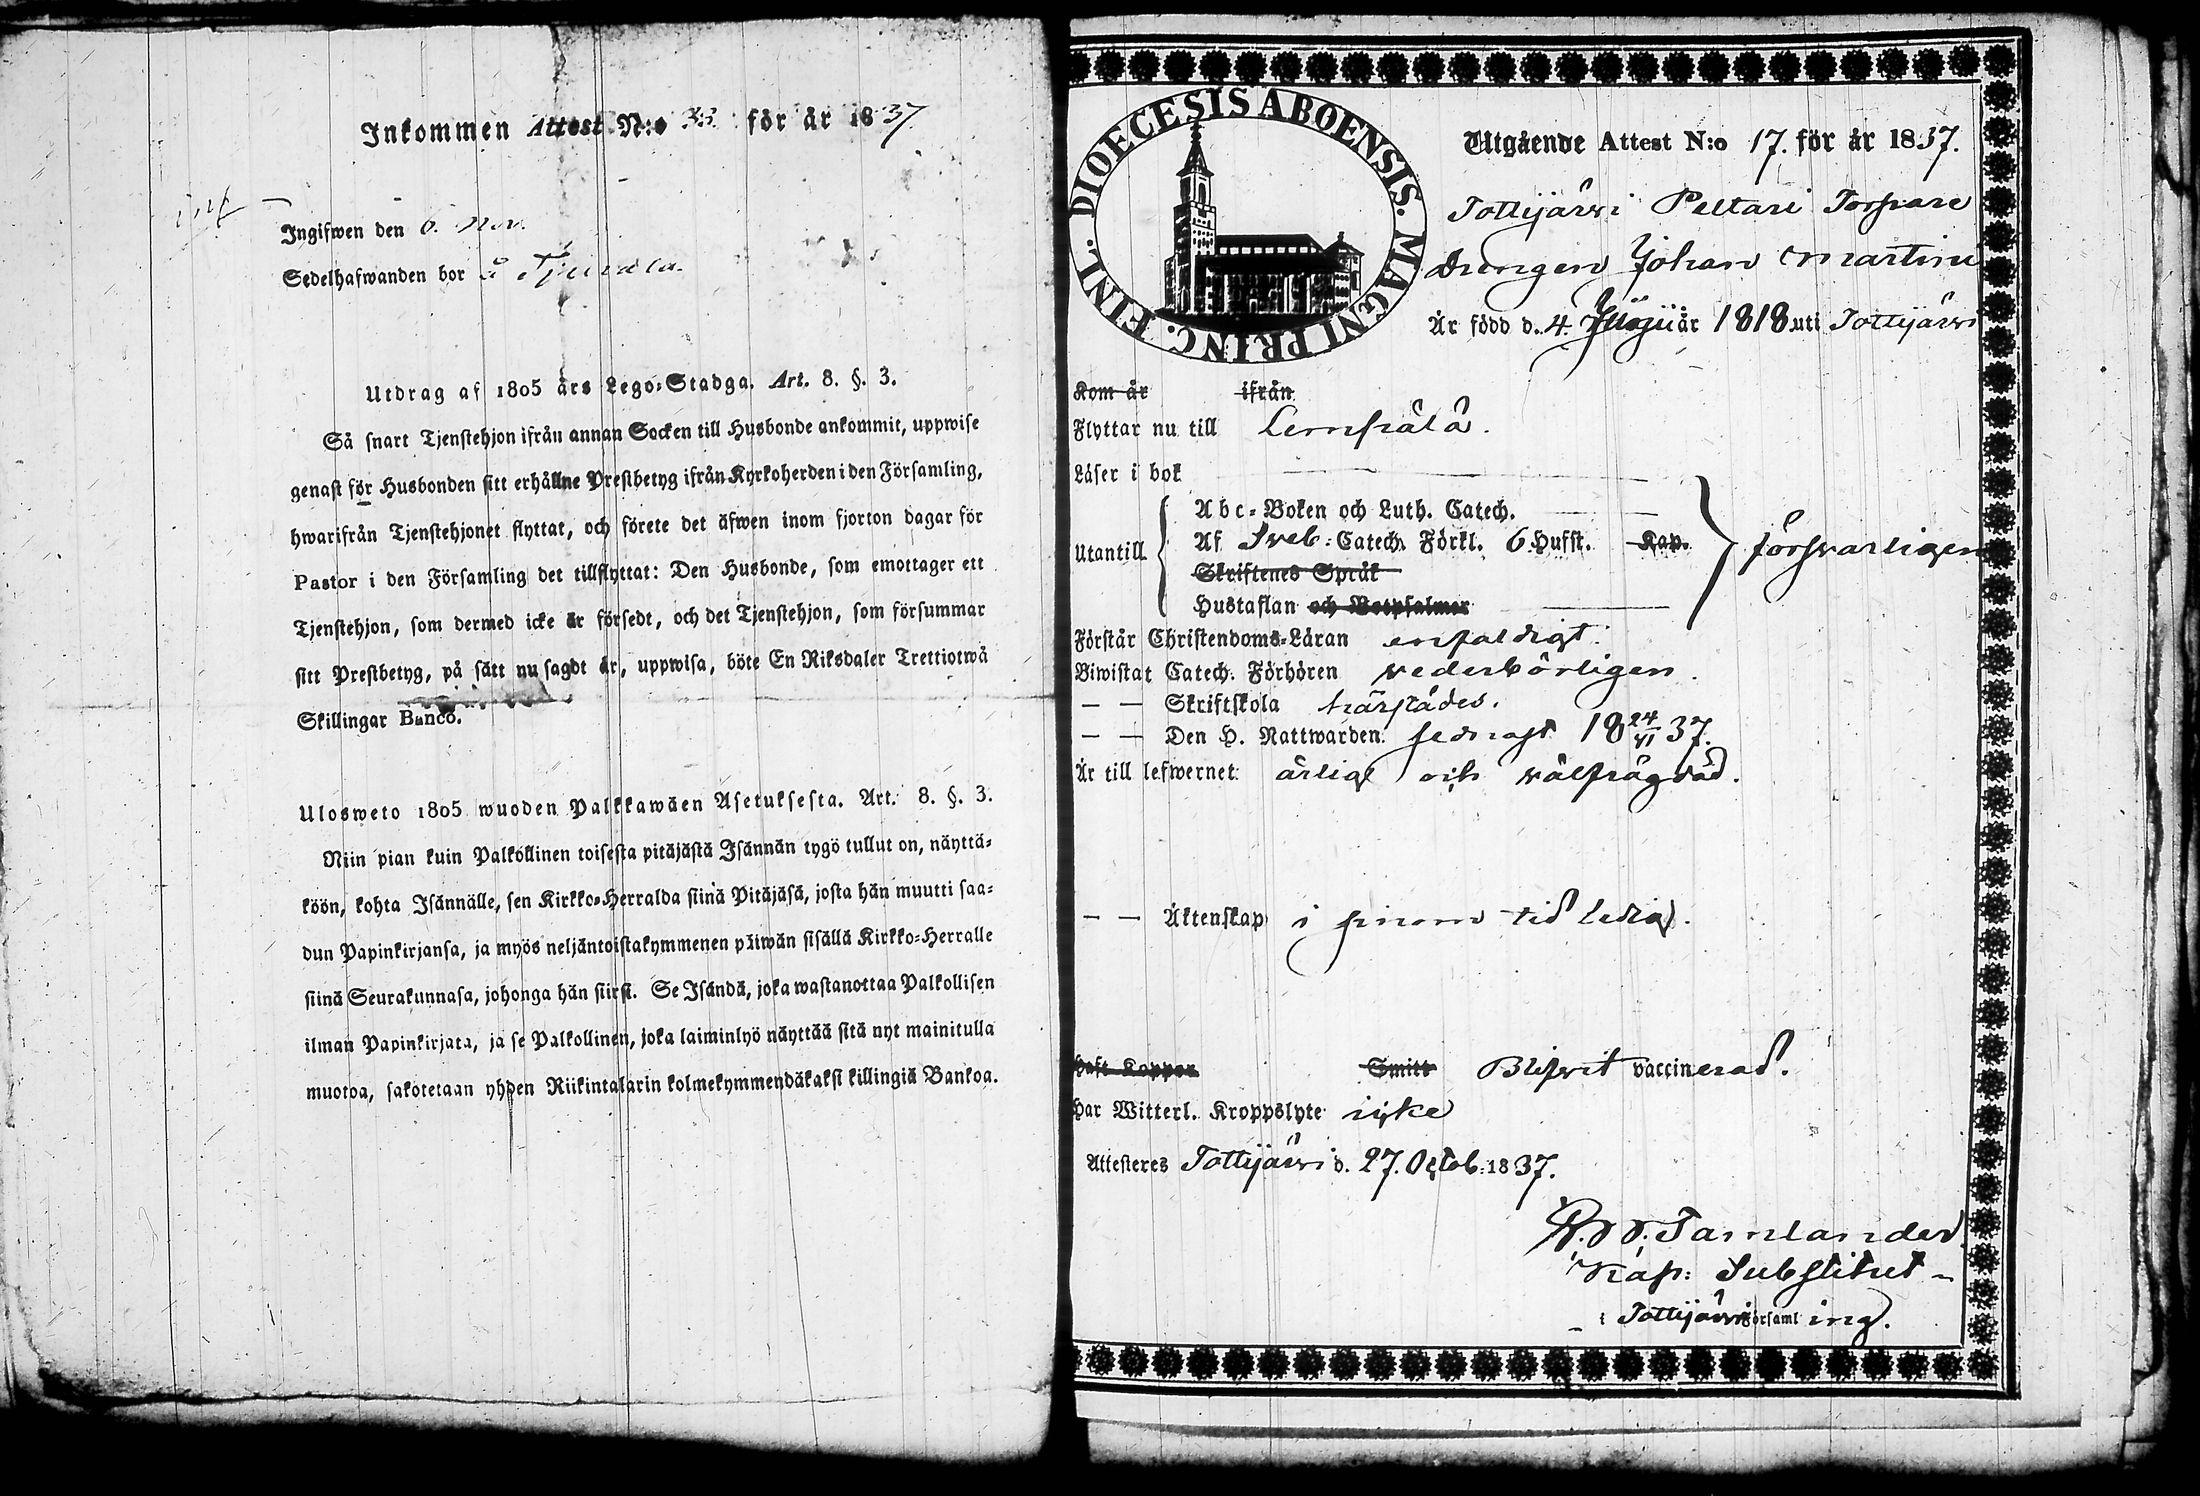 Inkommen Attest N:o 33 för år 1837.
Ingifwen den 6. Nov.
Sedelhafwanden bor å
Utdrag af 1805 års Lego-Stadga. Art. 8. §. 3.
Så snart Tjenstehjon ifrån annan Socken till Husbonde ankommit, uppwise
genast för Husbonden sitt erhållne Prestbetyg ifrån Kyrkoherden i den Församling,
hwarifrån Tjenstehjonet flyttat, och förete det äfwen inom fjorton dagar för
Pastor i den Församling det tillflyttat: Den Husbonde, som emottager ett
Tjenstehjon, som dermed icke är försedt, och det Tjenstehjon, som försummar
sitt Prestbetyg, på sätt nu sagdt är, uppwisa, böte En Riksdaler Trettiotwå
Skillingar Banco.
Ulosweto 1805 wuoden Palkkawäen Asetuksesta. Art. 8. §. 3.
Niin pian kuin Palkollinen toisesta pitäjästä Isännän tygö tullut on, näyttä-
köön, kohta Isännälle, sen Kirkko-Herralda siinä Pitäjäsä, josta hän muutti saa-
dun Papinkirjansa, ja myös neljäntoistakymmenen päiwän sisällä Kirkko-Herralle
siinä Seurakunnasa, johonga hän siirsi. Se Isändä, joka wastanottaa Palkollisen
ilman Papinkirjata, ja se Palkollinen, joka laiminlyö näyttää sitä nyt mainitulla
muotoa, sakotetaan yhden Riikintalarin kolmekymmendäkaksi killingiä Bankoa.
DIOECESIS ABOENSIS. MAGNI PRINC. FINL.
Utgående Attest N:o 17. för år 1837.
Tottijärwi Peltari Torpare
Drengen Johan Martin
Är född d. 4. år 1818 uti Tottijärwi
Kom år ifrån
Flyttar nu till Lempälä.
Läser i bok
Utantill
Abc-Boken och Luth. Catech.
Af Sveb: Catech. Förkl. 6 Hufst. Kap.
Skriftenes Språk
Hustaflan och Botpsalmer
försvarligen
Förstår Christendoms-Läran enfaldigt.
Biwistat Catech. Förhören vederbörligen.
— — Skriftskola härstädes.
— — Den H. Nattwarden sednast 18 24/VI 37.
Är till lefwernet ärlig och välfrägdad.
— — Äktenskap i sinom tid ledig.
Haft Koppor Smitt Blifvit vaccinerad.
Har Witterl. Kroppslyte icke
Attesteres Tottijärwi d. 27. Octob: 1837.
Tamlander
Kap: Substitut
i Tottijärwi Församling.